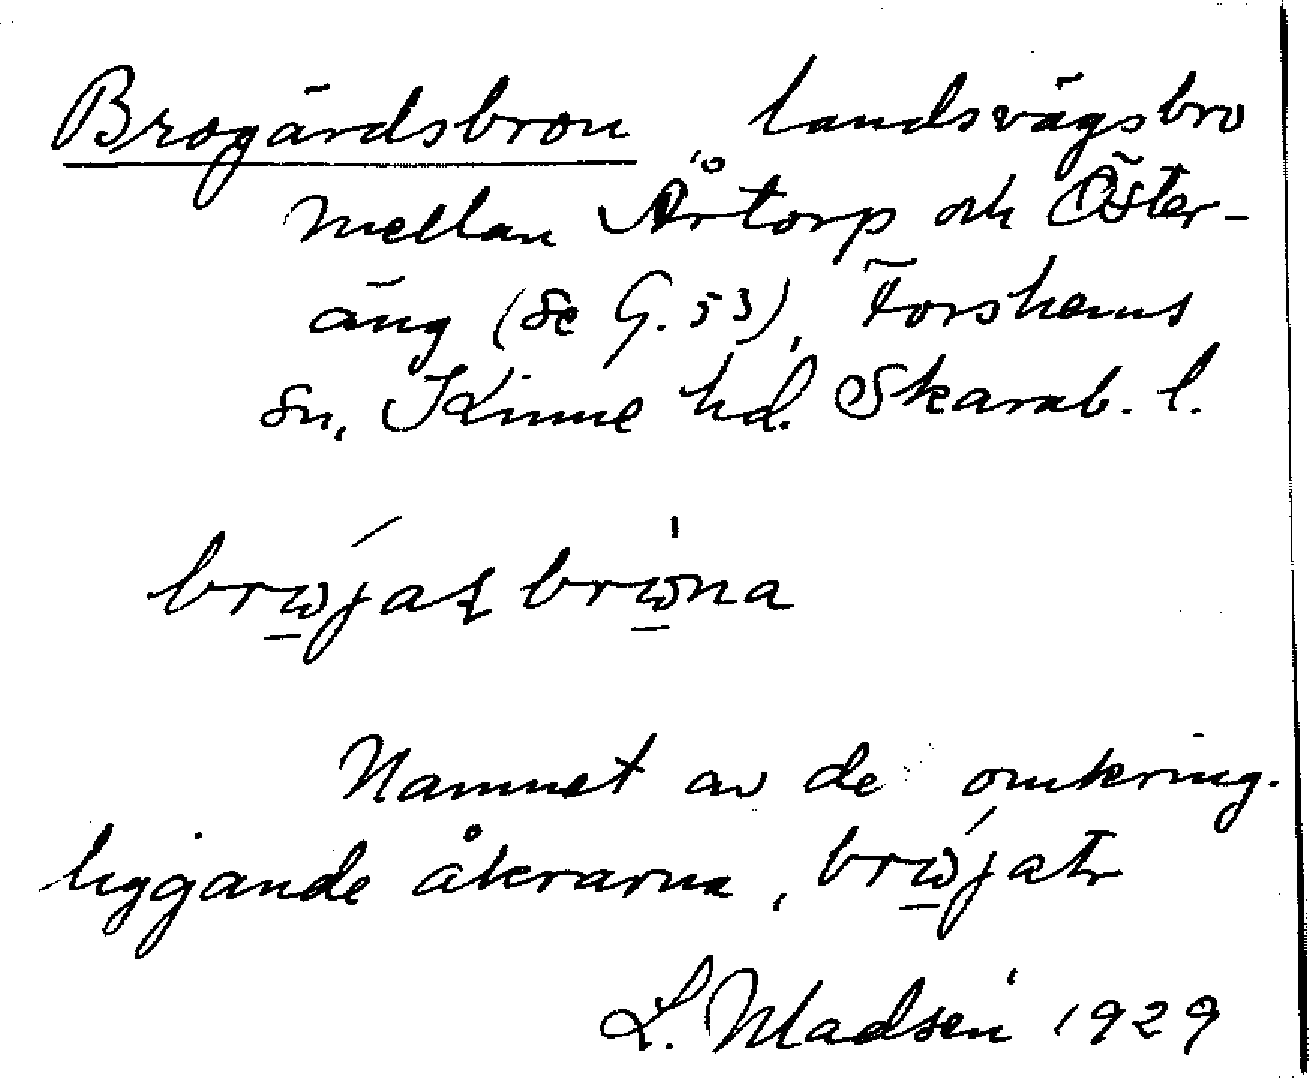 Brogärdsbron landsvägsbro
mellan Årtorp och Öster-
äng (se G. 53), Forshems
sn, Kinne hd. Skarab. l.
Namnet av de omkring-
liggande åkrarna,
L. Madsén 1929